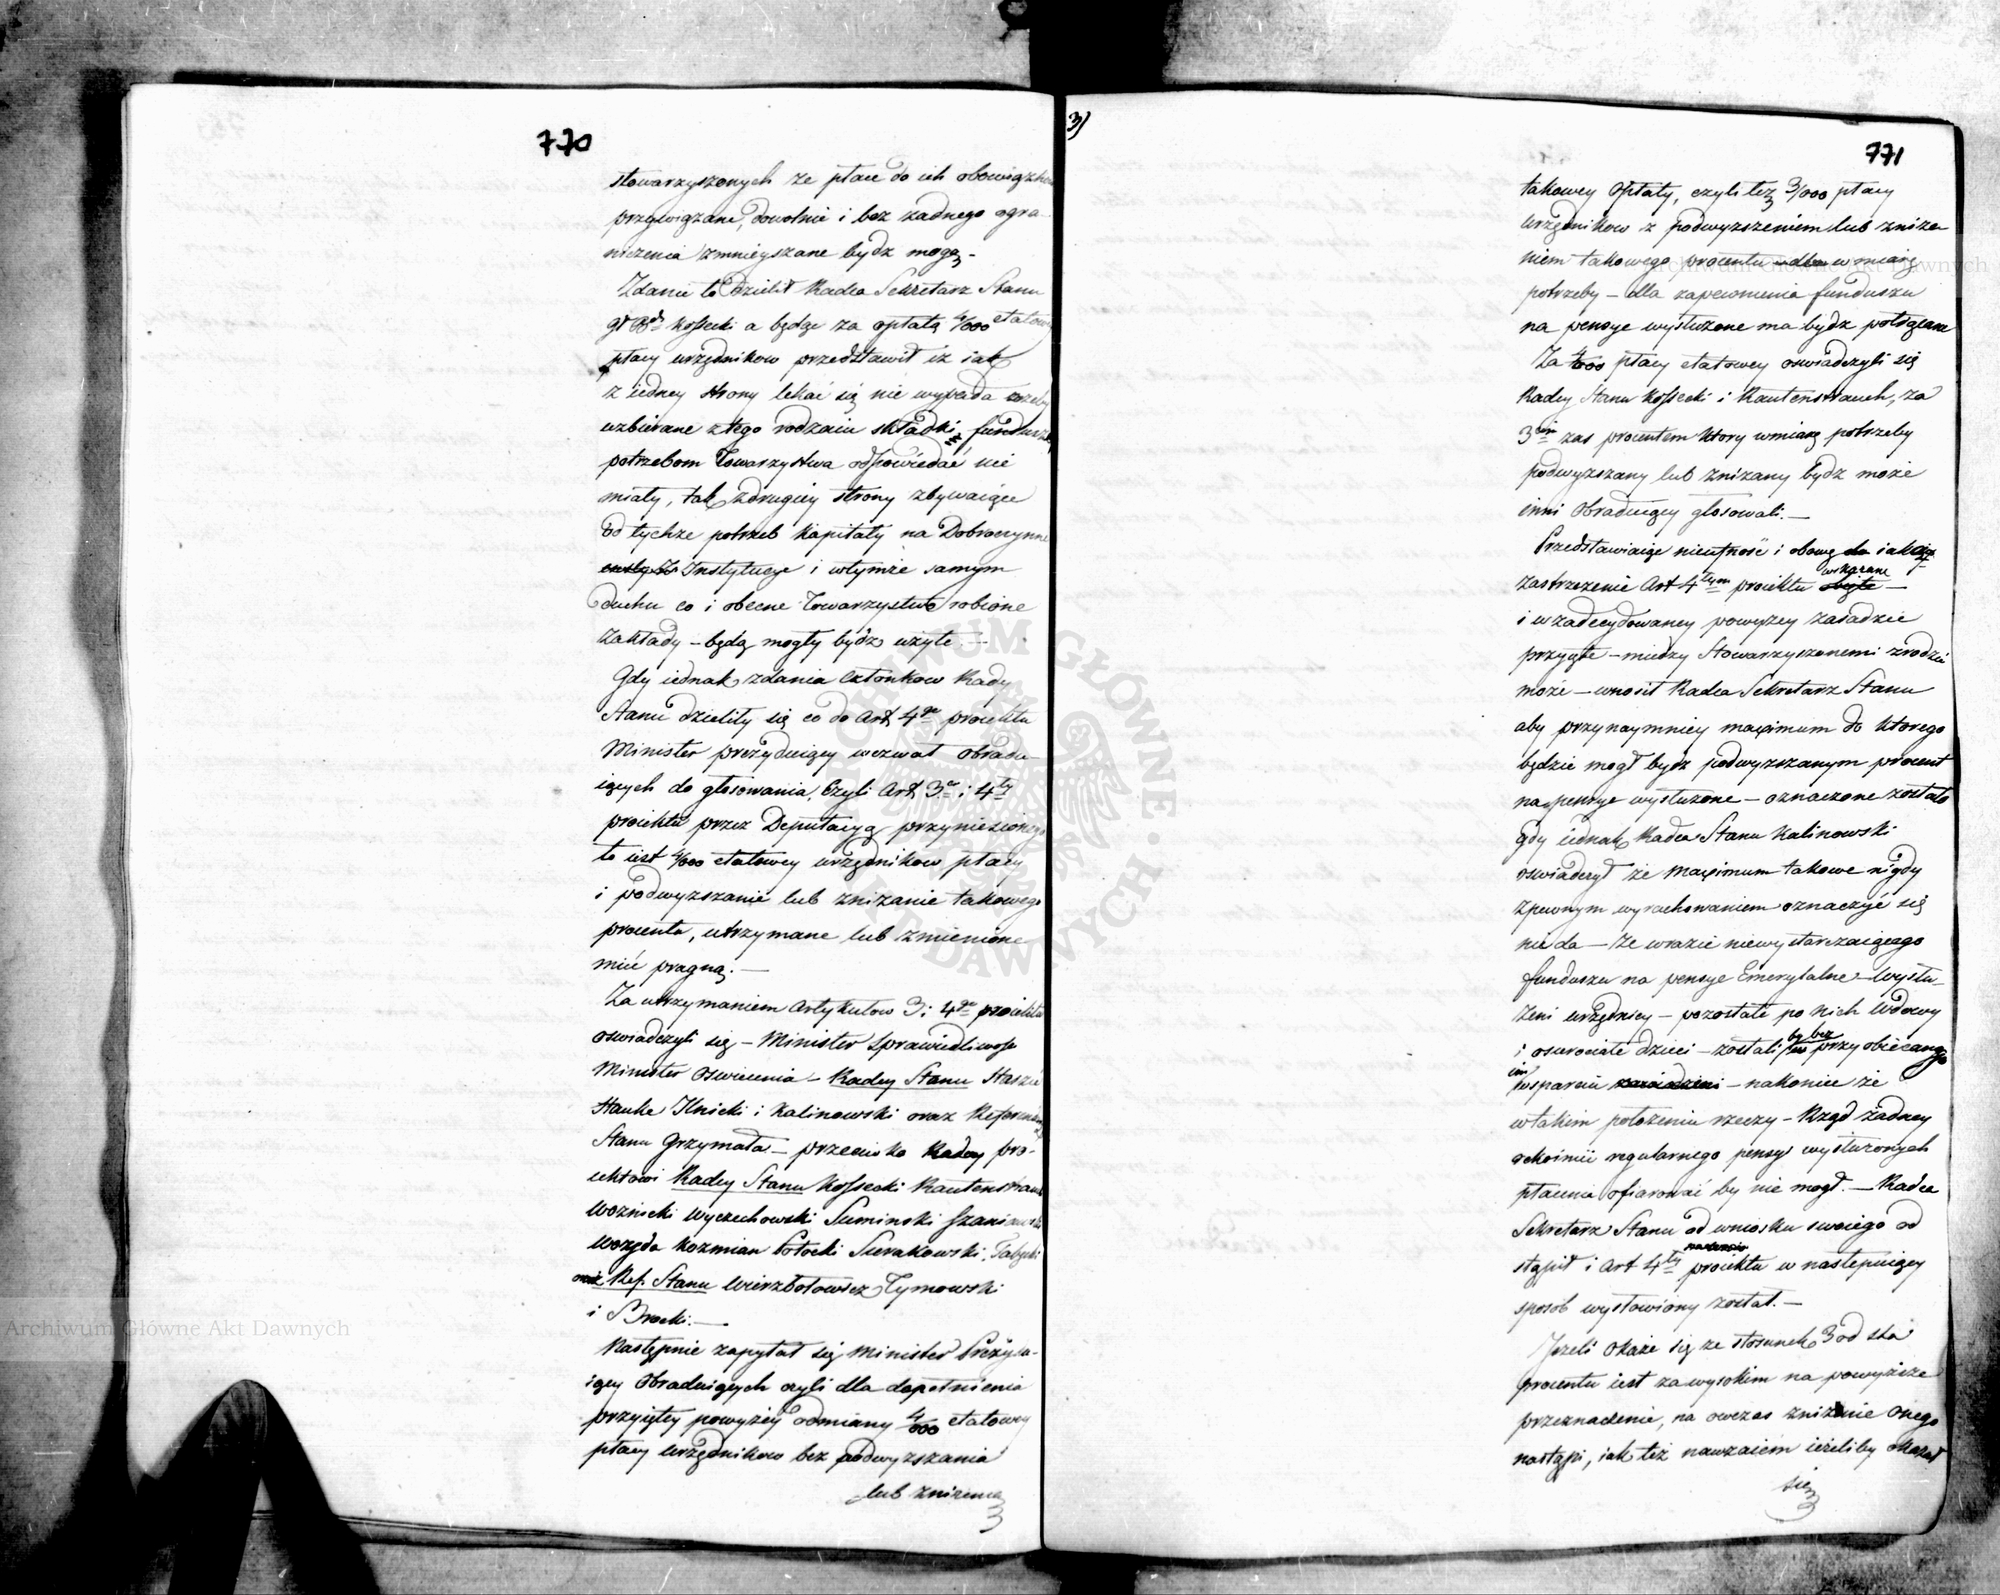 770
stowarzyszonych ze płace do ich obowiązków
przywiązane, dowolnie i bez żadnego ogra-
niczenia zmnieyszane bydz mogą. -
Zdanie to dzielił Radca Sekretarz Stanu
Kossecki a będąc za opłatą 4/000 etatowey
płacy urzędnikow przedstawił iż iak
z iedney strony lękać się nie wypada żeby
uzbierane z tego rodzaiu składki fundusze
potrzebom Towarzystwa odpowiedać nie
miały, tak z drugiey strony zbywaiące
od tychże potrzeb kapitały na Dobroczynne
Instytucye i w tymże samym
duchu co i obecne Towarzystwo robione
zakłady - będą mogły bydz użyte. -
Gdy iednak zdania Członkow Rady
Stanu dzieliły się co do Art 4go proiektu
Minister prezyduiący wezwał obradu-
iących do głosowania, Czyli Art. 3ci i 4ty
proiektu przez Deputacyą przyniesionego
to iest 4/000 etatowey urzędnikow płacy
i podwyższanie lub zniżanie takowego
procentu, utrzymane lub zmienione
mieć pragną. -
Za utrzymaniem Artykułow 3 i 4go proiektu
oswiadczyli się - Minister Sprawiedliwośc
Minister Oswiecenia - Radcy Stanu Staszic
Hauke Ilnicki i Kalinowski oraz Referendarz
Stanu Grzymała - przeciwko Radcy pro-
iektowi Radcy Stanu Kossecki Rautenstrauch
Woznicki Wyczechowski Suminski Szaniawski
Woyda Kozmian Potocki Sierakowski,
oraz Ref. Stanu Wierzbołowicz Tymowski
i Brocki. -
Następnie zapytał się Minister Prezydu-
iący Obraduiących czyli dla dopełnienia
przyiętey powyżey odmiany 4/000 etatowey
płacy urzędnikow bez podwyzszania
lub zniżenia
3)
771
takowey Opłaty, czyli też 3/000 płacy
urzędnikow z podwyzszeniem lub zniże-
niem takowego procentu w miarę
potrzeby - dla zapewnienia funduszu
na pensye wysłużone ma bydz potrącane
Za 4/000 płacy etatowey oswiadczyli się
Radcy Stanu Kossecki i Rautenstrauch, za
3cim zas procentem ktory w miarę potrzeby
podwyzszany lub zniżany bydz może
inni Obraduiący głosowali. -
Przedstawiaiąc nieufność i obawę iaką
zastrzeżenie Art 4tym proiektu wskazane -
i w zadecydowaney powyżey zasadzie
przyięte - między Stowarzyszonemi zrodzić
może - wnosił Radca Sekretarz Stanu
aby przynaymniey maximum do ktorego
będzie mogł bydz podwyzszanym procent
na pensye wysłużone - oznaczone zostało
gdy iednak Radca Stanu Kalinowski
oswiadczył że maximum takowe nigdy
z pewnym wyrachowaniem oznaczyć się
nie da - że w razie niewystarczaiącego
funduszu na pensye Emerytalne - wysłu-
żeni urzędnicy - pozostałe po nich wdowy
i osierociałe dzieci - zostaliby bez przyobiecanego
im wsparcia - nakoniec że
w takim położeniu rzeczy - Rząd żadney
rękoimii regularnego pensyi wysłużonych
płacenia ofiarować by nie mogł. - Radca
Sekretarz Stanu od wniosku swoiego od
stąpił i Art 4ty proiektu w następuiący
sposob wystawiony został. -
Jeżeli okaże się ze stosunek 3 od sta
procentu iest za wysokim na powyższe
przeznaczenie, na owczas zniżenie onego
nastąpi, iak też nawzaiem ieżeliby okazał
się